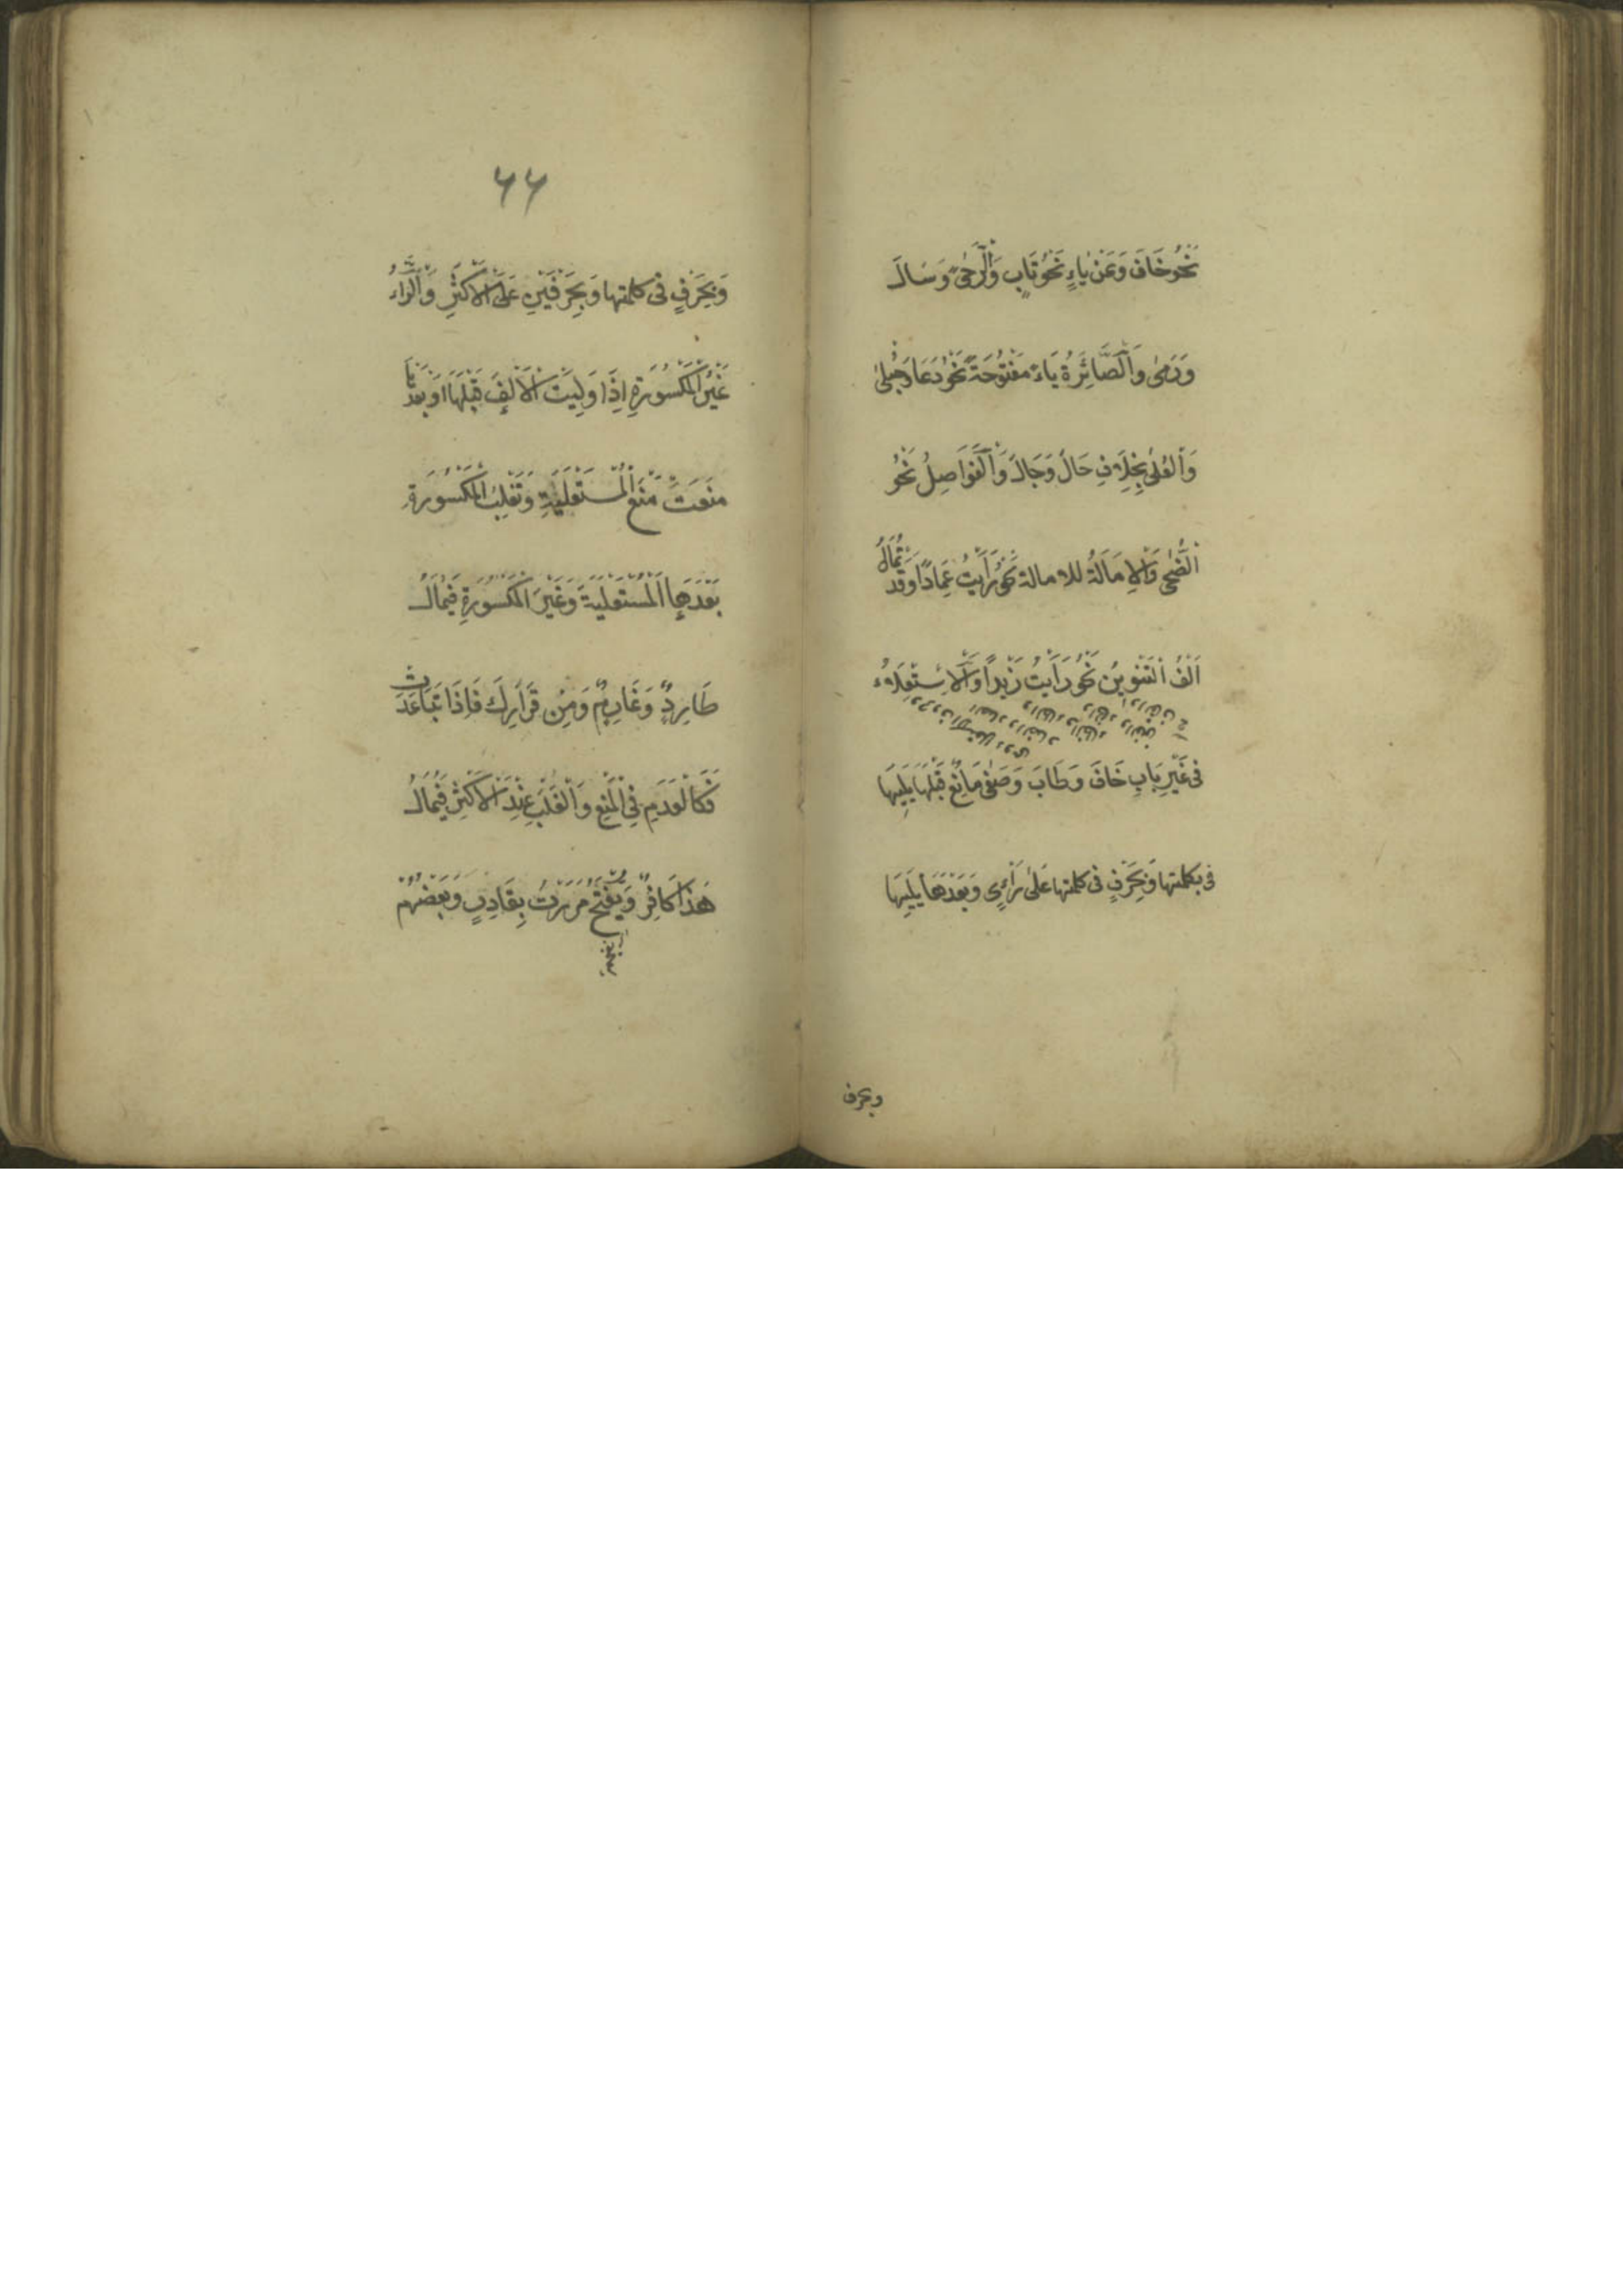 نَحْوُ خَافَ وَعَنْ يَاءٍ نَحْوُ نَابٍ وَالرَّحٰى وَسَالَ
وَرَمٰى وَالصَّائِرَةُ يَاءً مَفْتُوحَةً نَحْوُ دَعَا وَحُبْلٰى
وَالْعُلٰى بِخِلَافِ حَالَ وَجَالَ وَالْفَوَاصِلُ نَحْوُ
الضُّحٰى وَالْاِمَالَةُ للامالة نَحْوُ رَأَيْتُ عِمَادًا وَقَدْ تُمَالُ
اَلِفُ التَّنْوِينِ نَحْوُ رَأَيْتُ زَيْدًا وَالْاِسْتِعْلَاءُ
فى غَيْرِ بَابِ خَافَ وَطَابَ وَصَغٰى مَانِعٌ قَبْلَهَا يَلِيهَا
فى كلمتها وَبِحَرْفٍ فى كلمتها عَلٰى رَأْىٍ وَبَعْدَهَا يَلِيهَا
وبحرف
٦٦
وَبِحَرْفٍ فى كلمتها وَبِحَرْفَيْنِ عَلَى الْاَكْثَرِ وَالرَّاءُ
غَيْرُ الْمَكْسُورَةِ اِذَا وَلِيَتْ الْاَلِفَ قَبْلَهَا اَوْ بَعْدَهَا
مَنَعَتْ مَنْعَ الْمُسْتَعْلِيَةِ وَتَغْلِبُ الْمَكْسُورَةُ
بَعْدَهَا الْمُسْتَعْلِيَةَ وَغَيْرَ الْمَكْسُورَةِ فَيُمَالُ
طَارِدٌ وَغَارِمٌ وَمِنْ قَرَارِكَ فَاِذَا تَبَاعَدَتْ
فَكَالْعَدَمِ فِى الْمَنْعِ وَالْغَلَبِ عِنْدَ الْاَكْثَرِ فَيُمَالُ
هٰذَا كَافِرٌ وَيُفْتَحُ مَرَرْتُ بِقَادِرٍ وَبَعْضُهُمْ